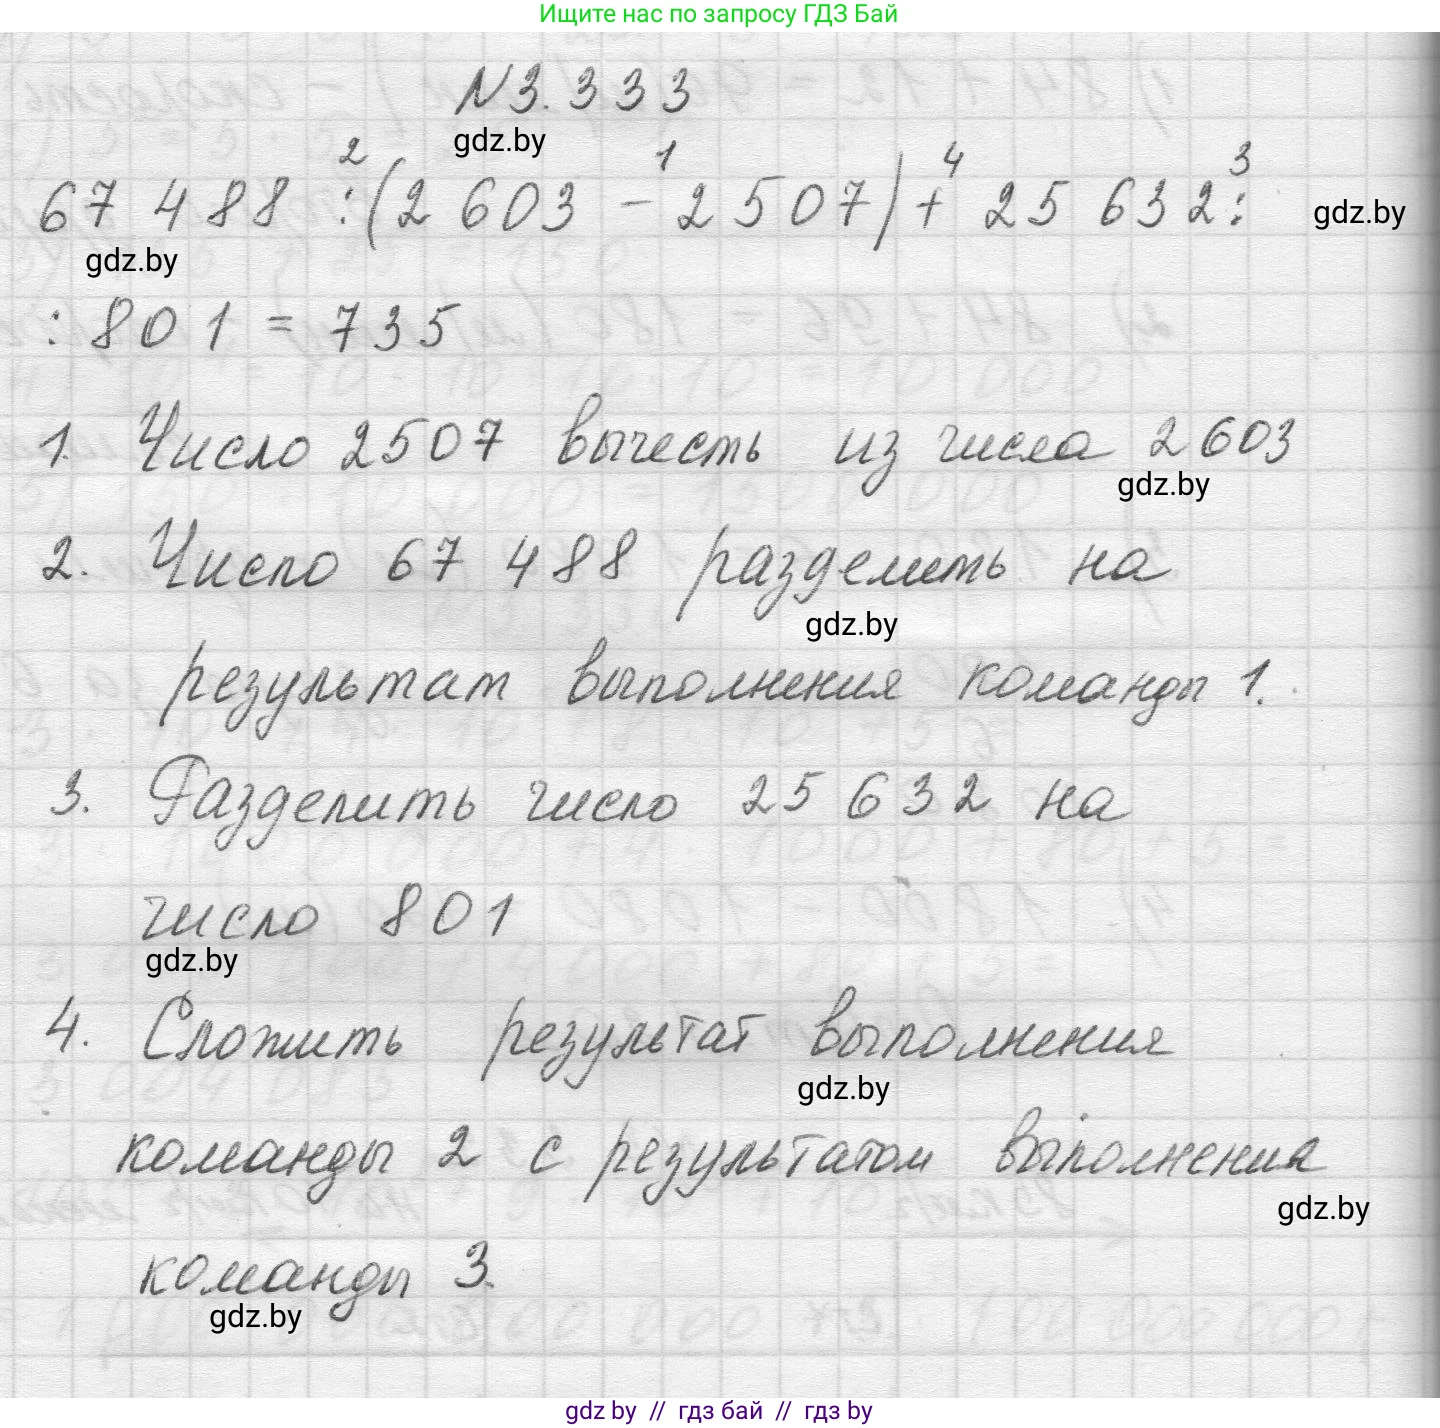 Ищите нас по запросу ГДЗ Бай
N3.333
gdz.by
2 1 4 3
67 488 :(2 603 - 2 507) + 25 632:
gdz.by
gdz.by
: 801 = 735
1. Число 2507 вычесть из числа 2603
gdz.by
2. Число 67 488 разделить на
gdz.by
результат выполнения команды 1.
3. Разделить число 25 632 на
число 801
gdz.by
4. Сложить результат выполнения
gdz.by
команды 2 с результатом выполнения
gdz.by
команды 3.
gdz.by
gdz by // гдз бай // гдз by